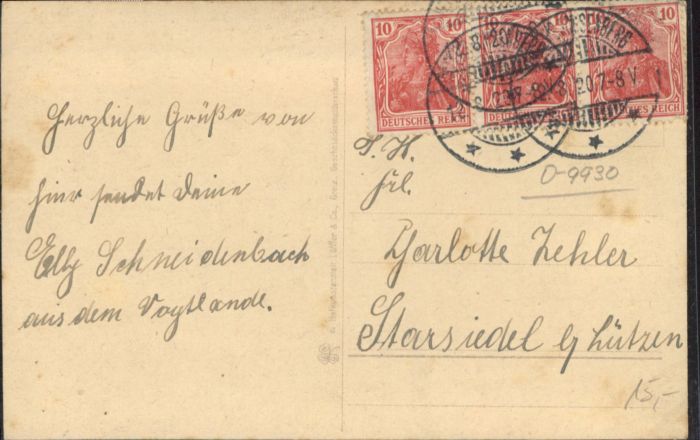 Herzliche Grüße von
hier sendet Deine
Elly Schneidenbach
aus dem Vogtlande.
10 10 10
DEUTSCHES REICH DEUTSCHES REICH DEUTSCHES REICH
20.7-8V.
D-9930
Frl.
Charlotte Zehler
Starsiedel b/Lützen
15,-